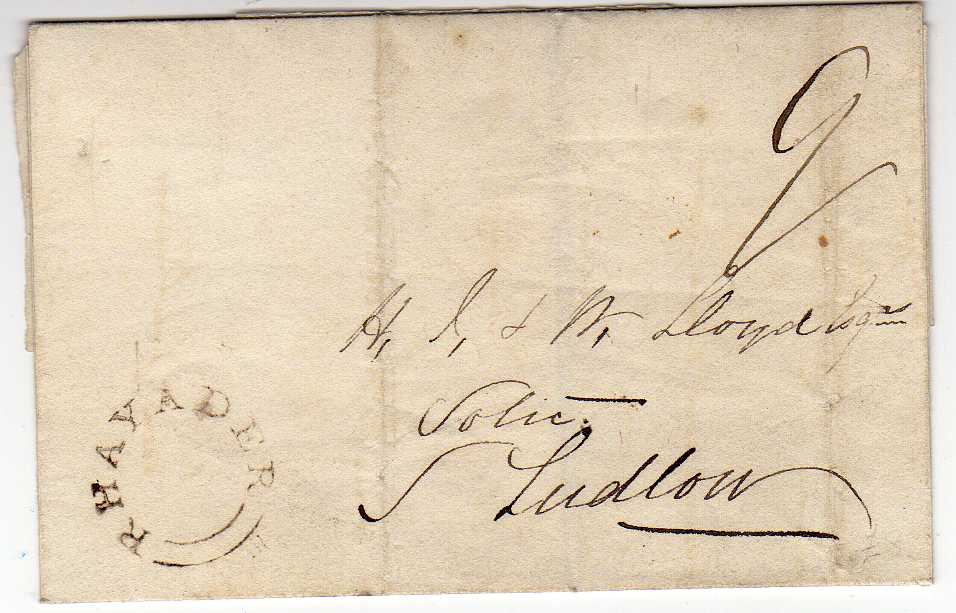 9
H, J, & W, Lloyd Esqrs
Solic.
Ludlow
RHAYADER